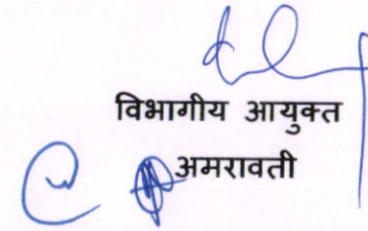 विभागीय आयुक्त
अमरावती